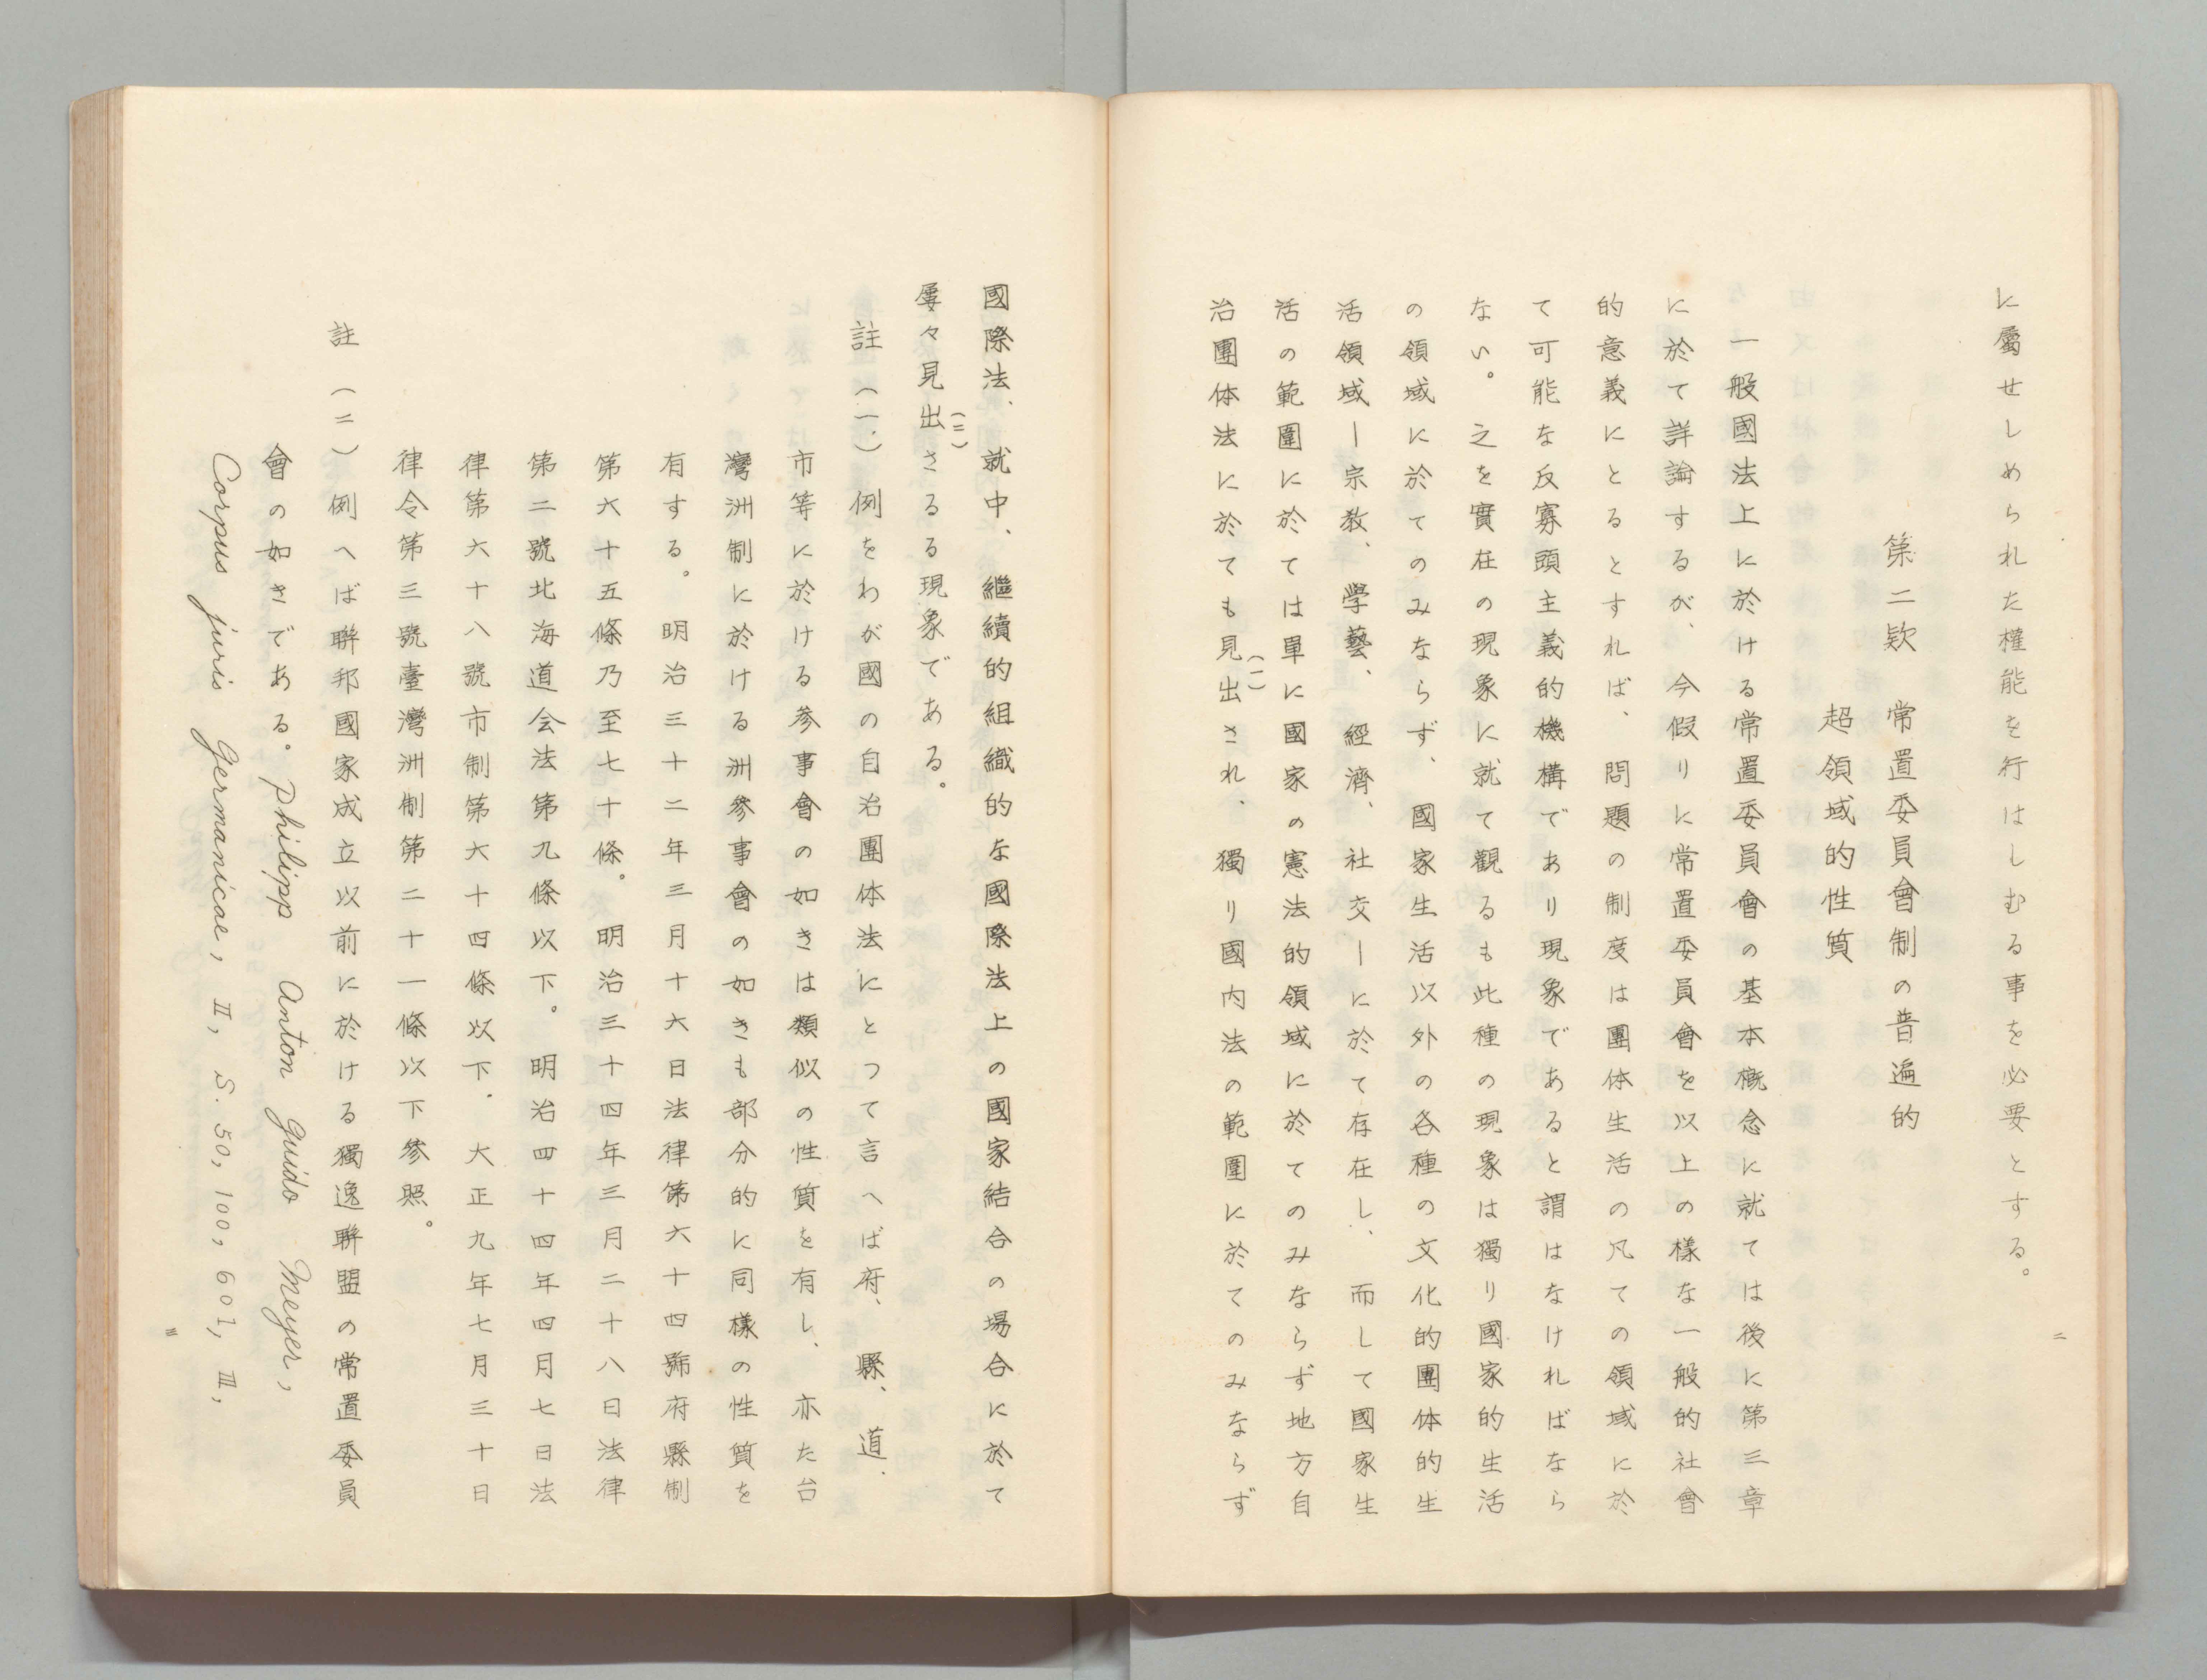 に屬せしめられた權能を行はしむる事を必要とする。
第二欵　常置委員會制の普遍的
超領域的性質
一般國法上に於ける常置委員會の基本概念に就ては後に第三章
に於て詳論するが、今假りに常置委員會を以上の樣な一般的社會
的意義にとるとすれば、問題の制度は團体生活の凡ての領域に於
て可能な反寡頭主義的機構であり現象であると謂はなければなら
ない。之を實在の現象に就て觀るも此種の現象は獨り國家的生活
の領域に於てのみならず、國家生活以外の各種の文化的團体的生
活領域ー宗敎、學藝、經濟、社交ーに於て存在し、而して國家生
活の範圍に於ては單に國家の憲法的領域に於てのみならず地方自
治團体法に於ても見出され、獨り國內法の範圍に於てのみならず
(一)
二
國際法、就中、繼續的組織的な國際法上の國家結合の場合に於て
屢々見出さるる現象である。
(二)
註（一）例をわが國の自治團体法にとつて言へば府、縣、道、
市等に於ける參事會の如きは類似の性質を有し、亦た台
灣洲制に於ける洲參事會の如きも部分的に同樣の性質を
有する。明治三十二年三月十六日法律第六十四號府縣制
第六十五條乃至七十條。明治三十四年三月二十八日法律
第二號北海道会法第九條以下。明治四十四年四月七日法
律第六十八號市制第六十四條以下。大正九年七月三十日
律令第三號臺灣洲制第二十一條以下參照。
註（二）例へば聯邦國家成立以前に於ける獨逸聯盟の常置委員
會の如きである。Philipp Anton Guido Meyer,
Corpus juris Germanicae, II, S. 50, 100, 601, III,
三